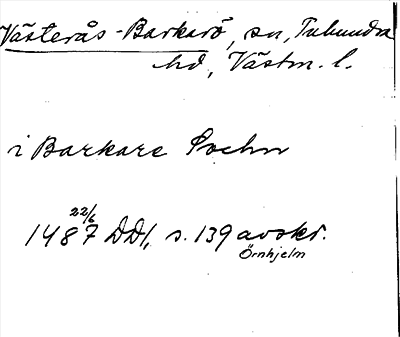 Västerås-Barkarö, sn, Tuhundra
hd, Västm. l.
i Barkare Sochn
22/6
1487 DD1, s. 139 avskr.
Örnhjelm